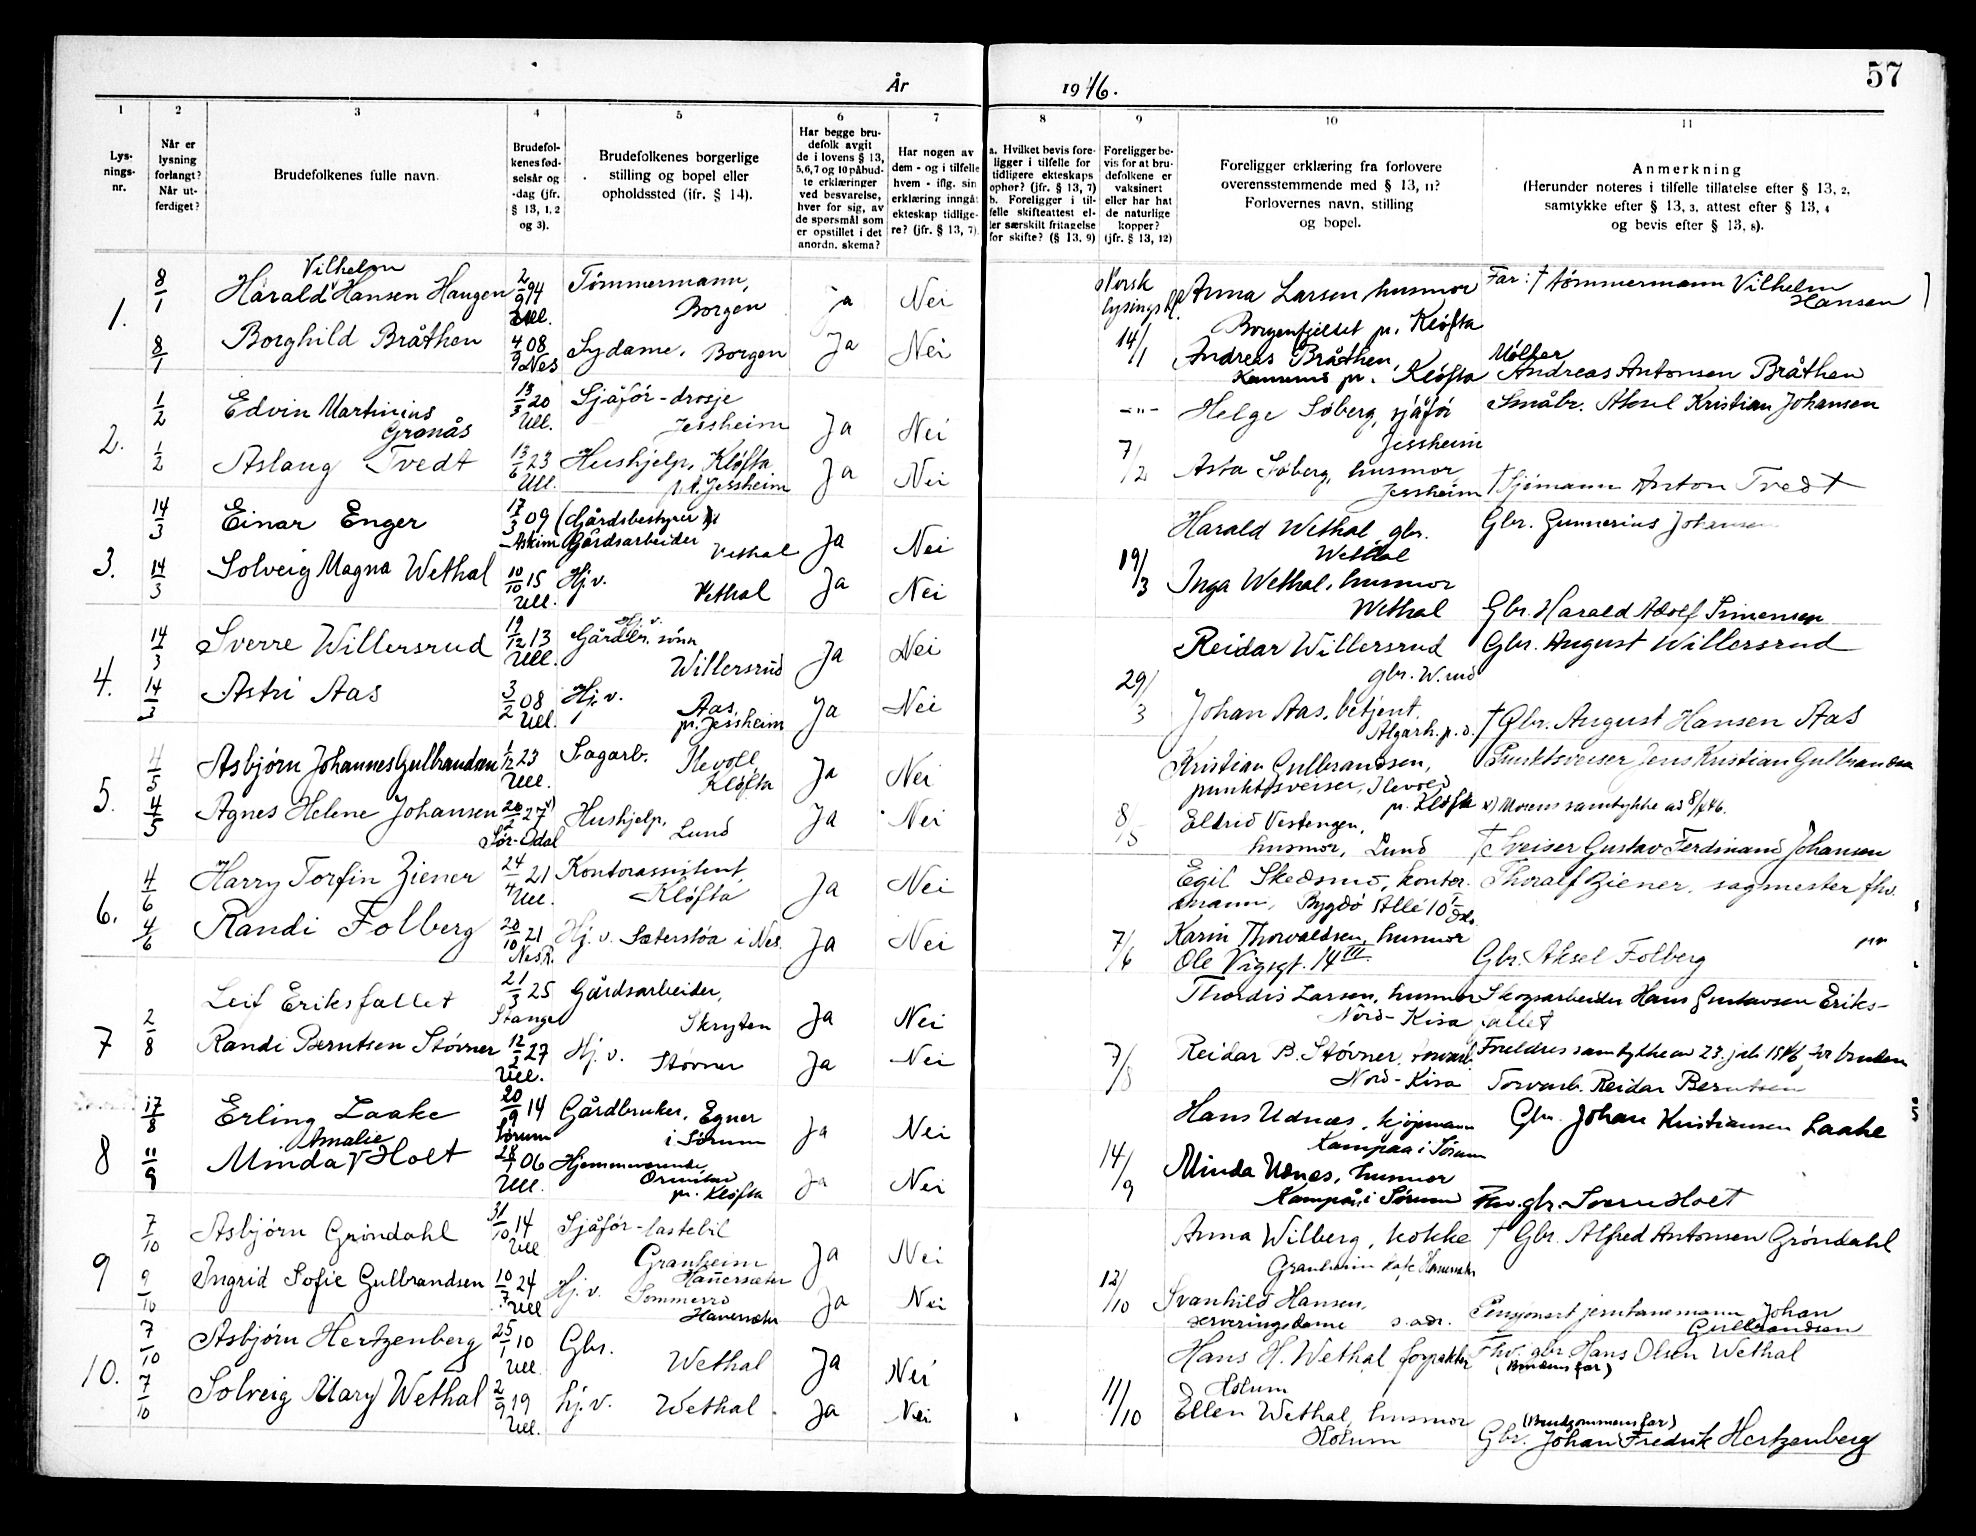 57
År 1946.
1 2 3 4 5 6 7 8 9 10 11
Lys-
nings-
nr.
Når er
lysning
forlangt?
Når ut-
ferdiget?
Brudefolkenes fulle navn.
Brudefol-
kenes fød-
selsår og
-dag (jfr.
§ 13, 1, 2
og 3).
Brudefolkenes borgerlige
stilling og bopel eller
opholdssted (ifr. § 14).
Har begge bru-
defolk avgit
de i lovens § 13,
5,6,7 og 10 påbud-
te erklæringer
ved besvarelse,
hver for sig, av
de spørsmål som
er opstillet i det
anordn. skema?
Har nogen av
dem - og i tilfelle
hvem - iflg. sin
erklæring inngåt
ekteskap tidlige-
re? (jfr. § 13, 7).
a. Hvilket bevis fore-
ligger i tilfelle for
tidligere ekteskaps
ophør? (jfr. § 13, 7)
b. Foreligger i til-
felle skifteattest el-
ler særskilt fritagelse
for skifte? (§ 13, 9)
Foreligger be-
vis for at bru-
defolkene er
vaksinert
eller har hat
de naturlige
kopper?
(jfr. § 13, 12)
Foreligger erklæring fra forlovere
overensstemmende med § 13, 11?
Forlovernes navn, stilling
og bopel.
Anmerkning
(Herunder noteres i tilfelle tillatelse efter § 13, 2,
samtykke efter § 13, 3, attest efter § 13, 4
og bevis efter § 13, 8).
1. 8/1 Harald Vilhelm Hansen Haugen 2/9 94 Ull. Tømmermann, Borgen ja Nei
Norsk lysings Anna Larsen husmor Borgenfjellet pr. Kløfta Far: † tømmermann Vilhelm Hansen
8/1 Borghild Bråthen 4/9 08 Nes Sydame, Borgen Ja Nei
14/1 Andreas Bråthen, pr. Kløfta Møller Andreas Antonsen Bråthen
2. 1/2 Edvin Martinius Grønås 13/3 20 Ull. Sjåfør-drosje Jessheim Ja Nei
-"- Helge Søberg, sjåfør Jessheim Småbr. Aksel Kristian Johansen
1/2 Aslaug Tvedt 13/6 23 Ull. Hushjelp, Kløfta p.t. Jessheim Ja Nei
7/2 Asta Søberg, husmor Jessheim † Sjømann Anton Tvedt
3. 14/3 Einar Enger 17/3 09 Askim (Gårdsbestyrer) Gårdsarbeider Vethal Ja Nei
Harald Wethal, gbr. Wethal Gbr. Gunnerius Johansen
14/3 Solveig Magna Wethal 10/10 15 Ull. Hj.v. Vethal Ja Nei
19/3 Inga Wethal, husmor Wethal Gbr. Harald Adolf Simensen
4. 14/3 Sverre Willersrud 19/12 13 Ull. Hj. v. Gårdbr. sønn Willersrud Ja Nei
Reidar Willersrud gbr. W.rud Gbr. August Willersrud
14/3 Astri Aas 3/2 08 Ull. Hj. v. Aas, pr. Jessheim Ja Nei
29/3 Johan Aas, betjent, Algarh. p.d. † Gbr. August Hansen Aas
5. 4/5 Asbjørn Johannes Gulbrandsen 1/12 23 Ull. Sagarb. Ilevoll, Kløfta Ja Nei
Kristian Gulbrandsen, punktsveiser, Ilevold pr. Kløfta Punktsveiser Jens Kristian Gulbrandsen
4/5 Agnes Helene Johansen 27 x) Sør-Odal Hushjelp, Lund Ja Nei
8/5 Eldrid Vestengen, husmor, Lund x) Morens samtykke ad 8/4 46.
† Sveiser Gustav Ferdinand Johansen
6. 4/6 Harry Torfin Ziener 24/4 21 Ull. Kontorassistent, Kløfta Ja Nei
Egil Skedsmo, kontor-mann, Bygdø Allé 10 Oslo Thoralf Ziener, sagmester fhv.
4/6 Randi Folberg 20/10 21 Nes R. Hj. v. Sæterstøa i Nes. Ja Nei
7/6 Karin Thorvaldsen, husmor Ole Vigsgt. 14 III. Gbr. Aksel Folberg
7 2/8 Leif Eriksfallet 21/3 25 Stange Gårdsarbeider, Skryten Ja Nei
Thordis Larsen, husmor Nord-Kisa Skogsarbeider Hans Gustavsen Eriks-
fallet
Randi Berntsen Støvner 12/3 27 Ull. Hj. v. Støvner Ja Nei
7/8 Reidar B. Støvner, torvarb. Nord-Kisa Foreldres samtykke av 23. juli 1946 for bruden
Torvarb. Reidar Berntsen
8 17/8 Erling Laake 20/9 14 Sørum Gårdbruker, Egner i Sørum Ja Nei
Hans Udnæs, kjøpmann Kampaa i Sørum Gbr. Johan Kristiansen Laake
11/9 Minda Amalie Holt 28/1 06 Ull. Hjemmeværende, pr. Kløfta Ja Nei
14/9 Minda Udnes, husmor Kampå, i Sørum Fhv. gbr. Sverre Holt
9 7/10 Asbjørn Grøndahl 31/10 14 Ull Sjåfør-lastebil Granheim Hauersæter Ja Nei
Anna Wilberg, kokke Granheim kafe Hauersæter † Gbr. Alfred Antonsen Grøndahl
9/10 Ingrid Sofie Gulbrandsen 10/7 24 Ull Hj. v. Sommerro Hauersæter Ja Nei
12/10 Svanhild Hansen, serveringsdame s. adr. Pensjonert jernbanemann Johan Gulbrandsen
10. 7/10 Asbjørn Hertzenberg 25/1 10 Ull Gbr. Wethal Ja Nei
Hans H. Wethal forpakter Holum Fhv. gbr Hans Olsen Wethal
(Brudens far)
7/10 Solveig Mary Wethal 2/9 19 Ull. hj. v. Wethal. Ja Nei
11/10 Ellen Wethal, husmor Holum (Brudgommens far)
Gbr. Johan Fredrik Hertzenberg